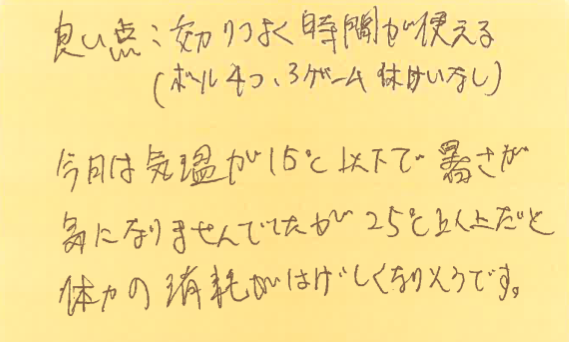 良い点：効りつよく時間が使える
（ボール4つ、3ゲーム休けいなし）
今日は気温が15℃以下で暑さが
気になりませんでしたが25℃以上だと
体力の消耗がはげしくなりそうです。